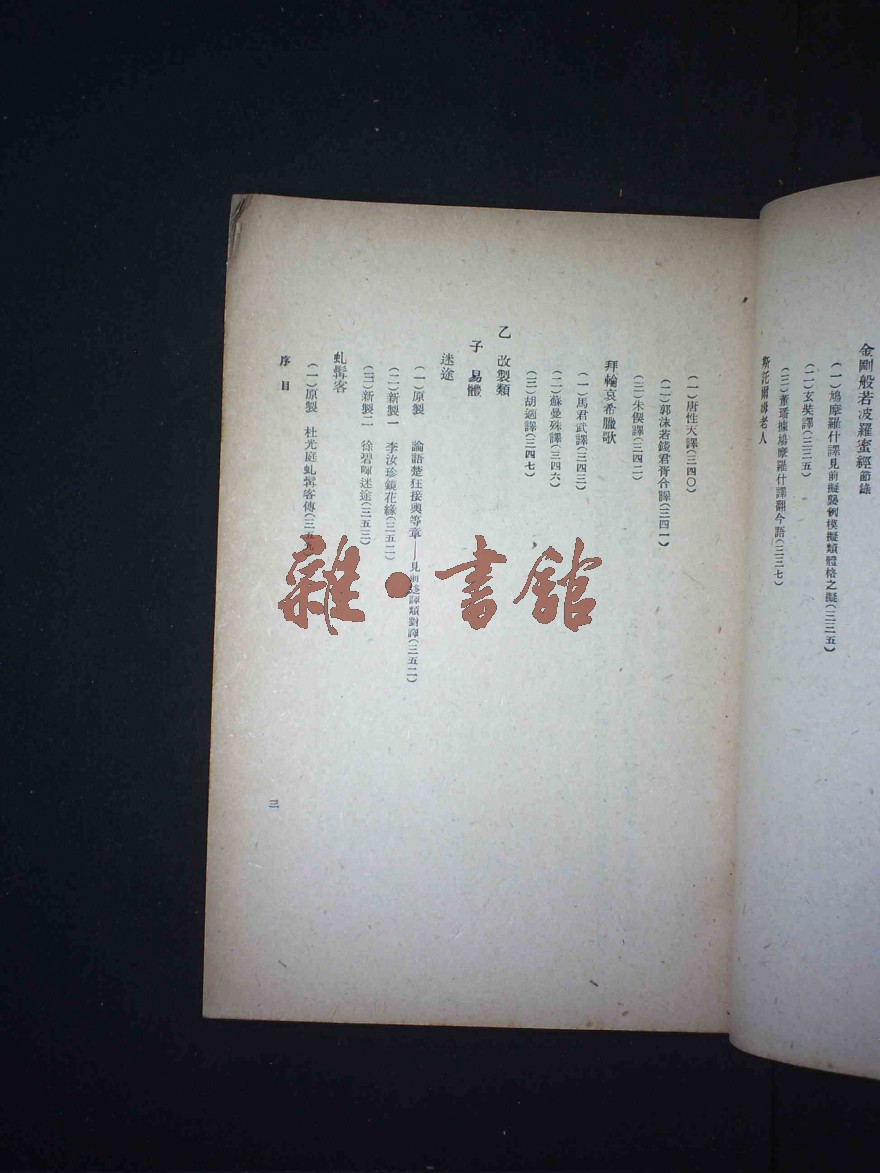 金剛般若波羅蜜經節錄
（一）鳩摩羅什譯見前擬襲例模擬類體格之擬（三三五）
（二）玄奘譯（三三五）
（三）董璠據鳩摩羅什譯翻今語（三三七）
斯托爾姆老人
（一）唐性天譯（三四〇）
（二）郭沫若錢君胥合譯（三四一）
（三）朱偰譯（三四二）
拜輪哀希臘歌
（一）馬君武譯（三四三）
（二）蘇曼殊譯（三四六）
（三）胡適譯（三四七）
乙 改製類
子 易體
迷途
（一）原製 論語楚狂接輿等章——見前迻譯類對譯（三五二）
（二）新製一 李汝珍鏡花緣（三五二）
（三）新製二 徐碧暉迷途（三五三）
虬髯客
（一）原製 杜光庭虬髯客傳（三五
序目
三
雜·書館